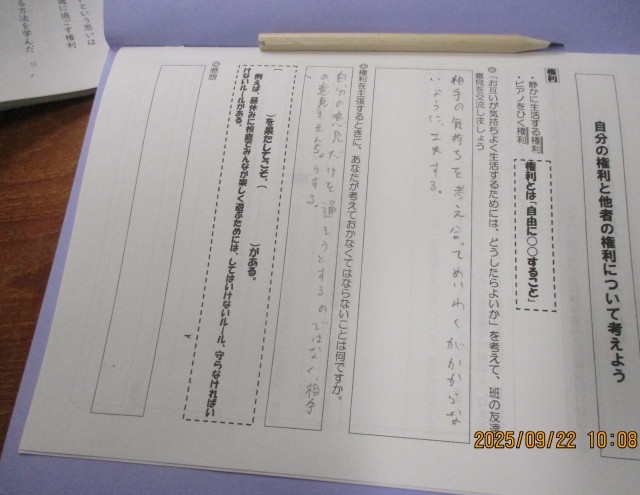 自分の権利と他者の権利について考えよう
権利
・静かに生活する権利
・ピアノをひく権利
権利とは「自由に○○すること」
◎「お互いが気持ちよく生活するためには、どうしたらよいか」を考えて、班の友達
意見を交流しましょう
相手の気持ちを考え合ってめいわくがかからな
いように、工夫する。
◎権利を主張するときに、あなたが考えておかなくてはならないことは何ですか。
自分の意見だけを通そうとするのではなく、相手
の意見をそんちょうする。
（　　　　　）を果たしてこそ、（　　　　　）がある。
例えば、昼休みに校庭でみんなが楽しく遊ぶためには、してはいけないルール、守らなければい
けないルールがある。
◎感想
という思いは
に過ごす権利
る方法を学んだ
2025/09/22 10:08